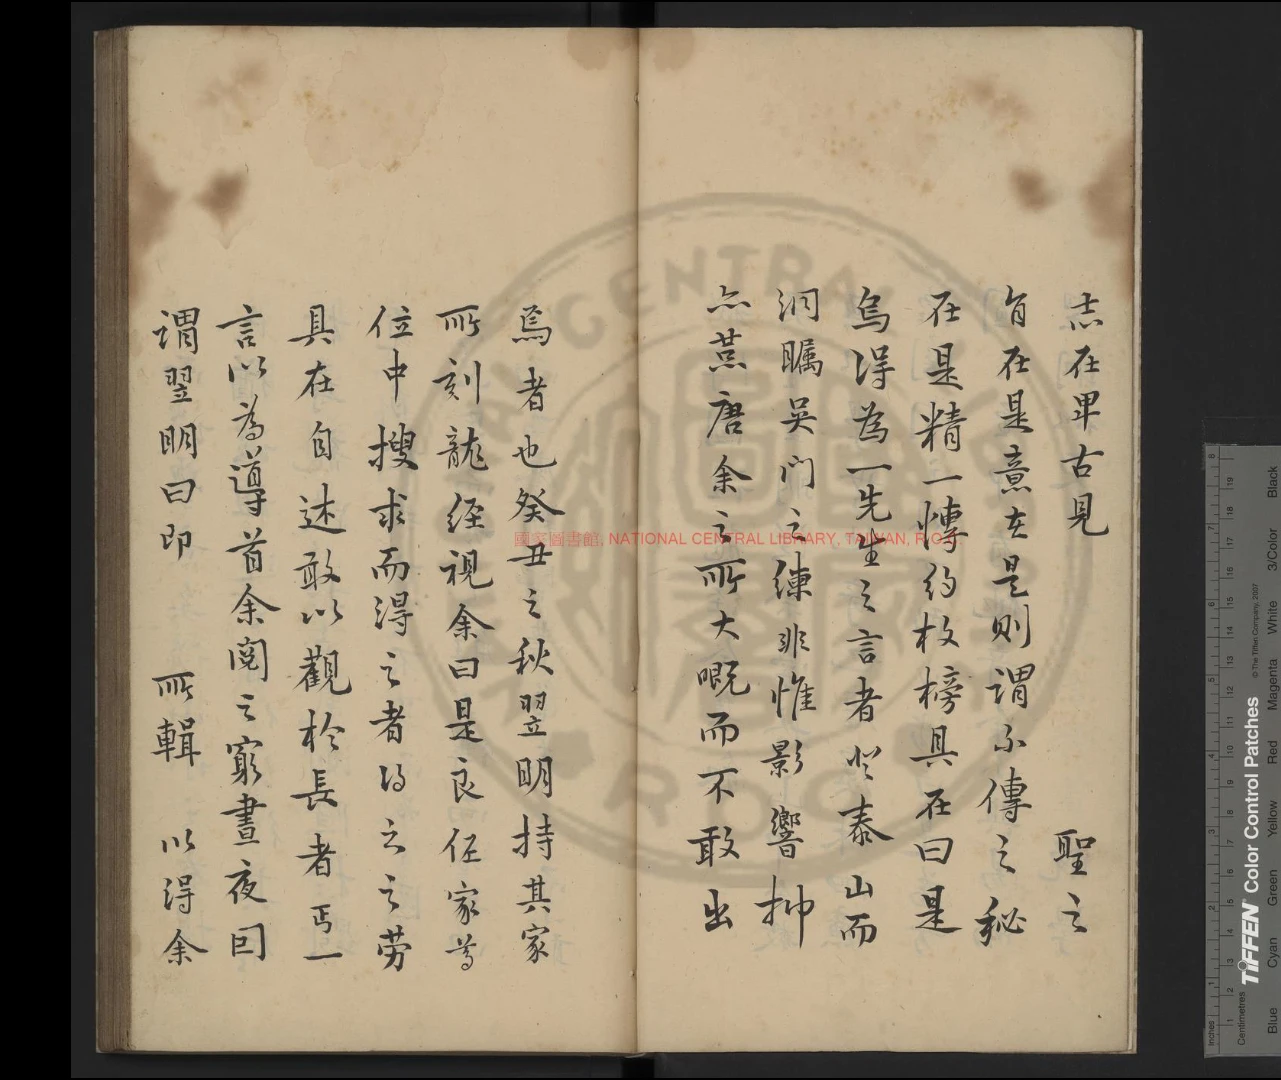 志在畢古見 聖之
旨在是意在是則謂不傳之秘
在是精一慱約枚榜具在曰是
烏得為一先生之言者登泰山而
洞矚吳門之練非惟影響抻
亦燕唐余之所大嘅而不敢出
焉者也癸丑之秋翌明持其家
所刻龍經視余曰是良任家尊
位中搜求而得之者得之之勞
具在自述敢以觀於長者丐一
言以為導首余閱之窮晝夜囙
謂翌明曰即 所輯 以得余
國家圖書館, NATIONAL CENTRAL LIBRARY, TAIWAN, R.O.C
CENTRAL
Inches
Centimetres
TIFFEN Color Control Patches
© The Tiffen Company, 2007
Blue Cyan Green Yellow Red Magenta White 3/Color Black